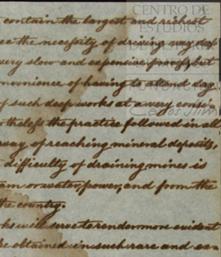 CENTRO DE
ESTUDIOS
contain the largest and richest
the necessity of driving way
very slow and expensive process but
convenience of having to attend day
of such deep works at a very consi
the practice followed in all
way of reaching mineral deposits,
difficulty of draining mines is
or water, power, and from the
the country.
will serve to render more evident
be obtained in such rare and